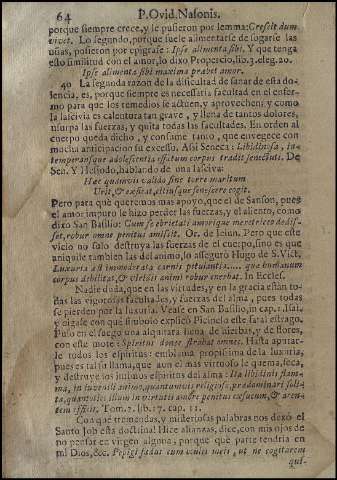 64 P. Ovid. Nasonis.
porque siempre crece, y le pusieron por lemma: Crescit dum
vivet. Lo segundo, porque suele alimentarse de sogarse las
usias, pusieron por epigrafe: Ipse alimenta sibi. Y que tenga
esto similitud con el amor, lo dixo Propercio, lib. 3. eleg. 20.
Ipse alimenta sibi maxima præbet amor.
40 La segunda razon de la dificultad de sanar de esta do-
lencia, es, porque siempre es necessaria facultad en el enfer-
mo para que los remedios se actuen, y aprovechen; y como
la lascivia es calentura tan grave, y llena de tantos dolores,
usurpa las fuerzas, y quita todas las facultades. En orden al
cuerpo queda dicho, y consume tanto, que envegece con
mucha anticipacion su excesso. Assi Seneca: Libidinosa, in-
temperansque adolescentia effœtum corpus tradit senectuti. De
Sen. Y Hesiodo, hablando de una lasciva:
Hæc quamvis valido sine torre maritum
Urit, & exsiccat, citiusque senescere cogit.
Pero para què queremos mas apoyo, que el de Sanson, pues
el amor impuro le hizo perder las fuerzas, y el aliento, como
dixo San Basilio: Cum se ebrietati amorique meretricio dedis-
set, robur omne penitus amisit. Or. de Ieiun. Pero que este
vicio no solo destruya las fuerzas de el cuerpo, sino es que
aniquile tambien las del animo, lo assegurò Hugo de S. Vict.
Luxuria est immoderata carnis petulantia quæ humanum
corpus debilitat, & etiam animi robur enerbat. In Eccles.
Nadie duda, que en las virtudes, y en la gracia estàn to-
das las vigorosas facultades, y fuerzas del alma, pues todas
se pierden por la luxuria. Vease en San Basilio, in cap. 1. Isai,
y oigase con què simbolo explicò Picinelo este fatal estrago.
Puso en el fuego una alquitara llena de hierbas, y de flores,
con este mote: Spiritus donec strahat omnes. Hasta apurar-
le todos los espiritus: emblema propissima de la luxuria,
pues es tal su llama, que aun el mas virtuoso le quema, seca,
y destruye los jugos espiritus del alma: Ita libidinis flam-
ma, in juvenili animo, quantumvis religioso, prædominari soli-
ta, quantos ille illum in virtutis amore penitus exsuccum, & aren-
tem efficit. Tom. 2. lib. 17. cap. 11.
Con què tremendas, y misteriosas palabras nos dexò el
Santo Job esta doctrina! Hice alianzas, dice, con mis ojos de
no pensar en virgen alguna; porque què parte tendria en
mi Dios, &c. Pepigi fædus cum oculis meis, ut ne cogitarem
qui-